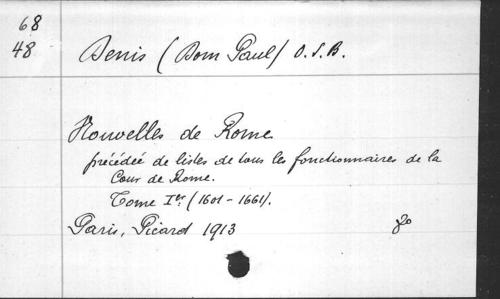 68
48 Denis (Dom Paul) O.S.B.
Nouvelles de Rome
précédée de listes de tous les fonctionnaires de la
Cour de Rome.
Tome Ier (1601-1661).
Paris, Picard 1913